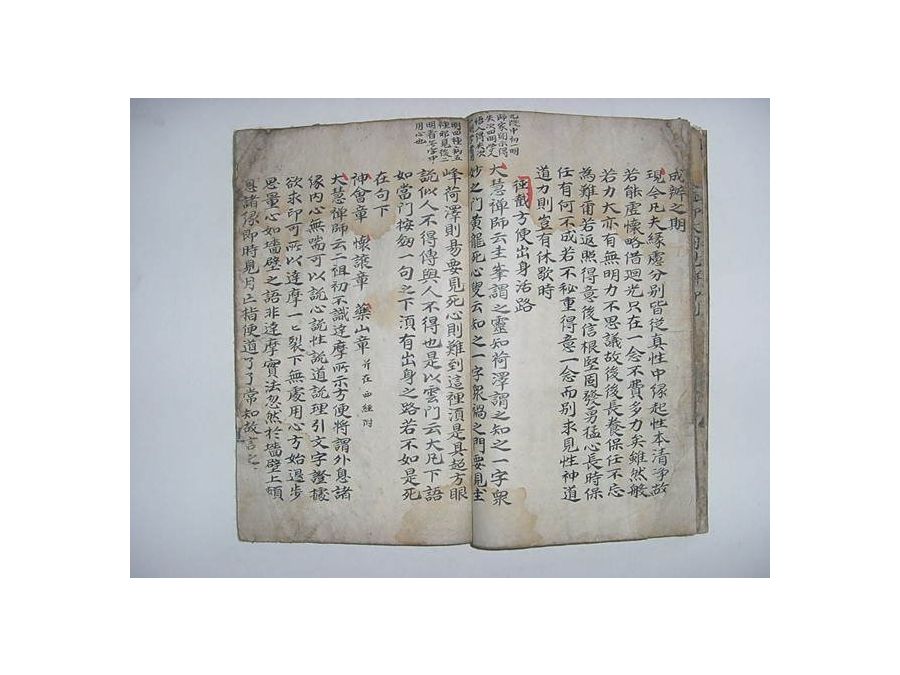 成辦之期
現今凡夫緣慮分別皆從真性中緣起性本清淨故
若能虛懷略借迴光只在一念不費多力矣雖然般
若力大亦有無明力不思議故後後長養保任不忘
為難甫若返照得意後信根堅固發勇猛心長時保
任有何不成若不秘重得意一念而別求見性神道
道力則豈有休歇時
方便出身活路
大慧禅師云圭峯謂之靈知荷澤謂之知之一字衆
妙之門黄龍死心叟云知之一字衆禍之門要見圭
峰荷澤則易要見死心則難到這裡湏是具超方眼
說似人不得傳與人不得也是以雲門云大凡下語
如當門按釼一句之下湏有出身之路若不如是死
在句下
神會章 懷讓章 藥山章 并在西經附
大慧禅師云二祖初不識達摩所示方便將謂外息諸
緣内心無喘可以說心說性說道說理引文字證據
欲求印可所以達摩一一裂下無處用心方始退步
思量心如墻壁之語非達摩實法忽然於墻壁上頓
息諸緣即時見月亡指便道了了常知故言之